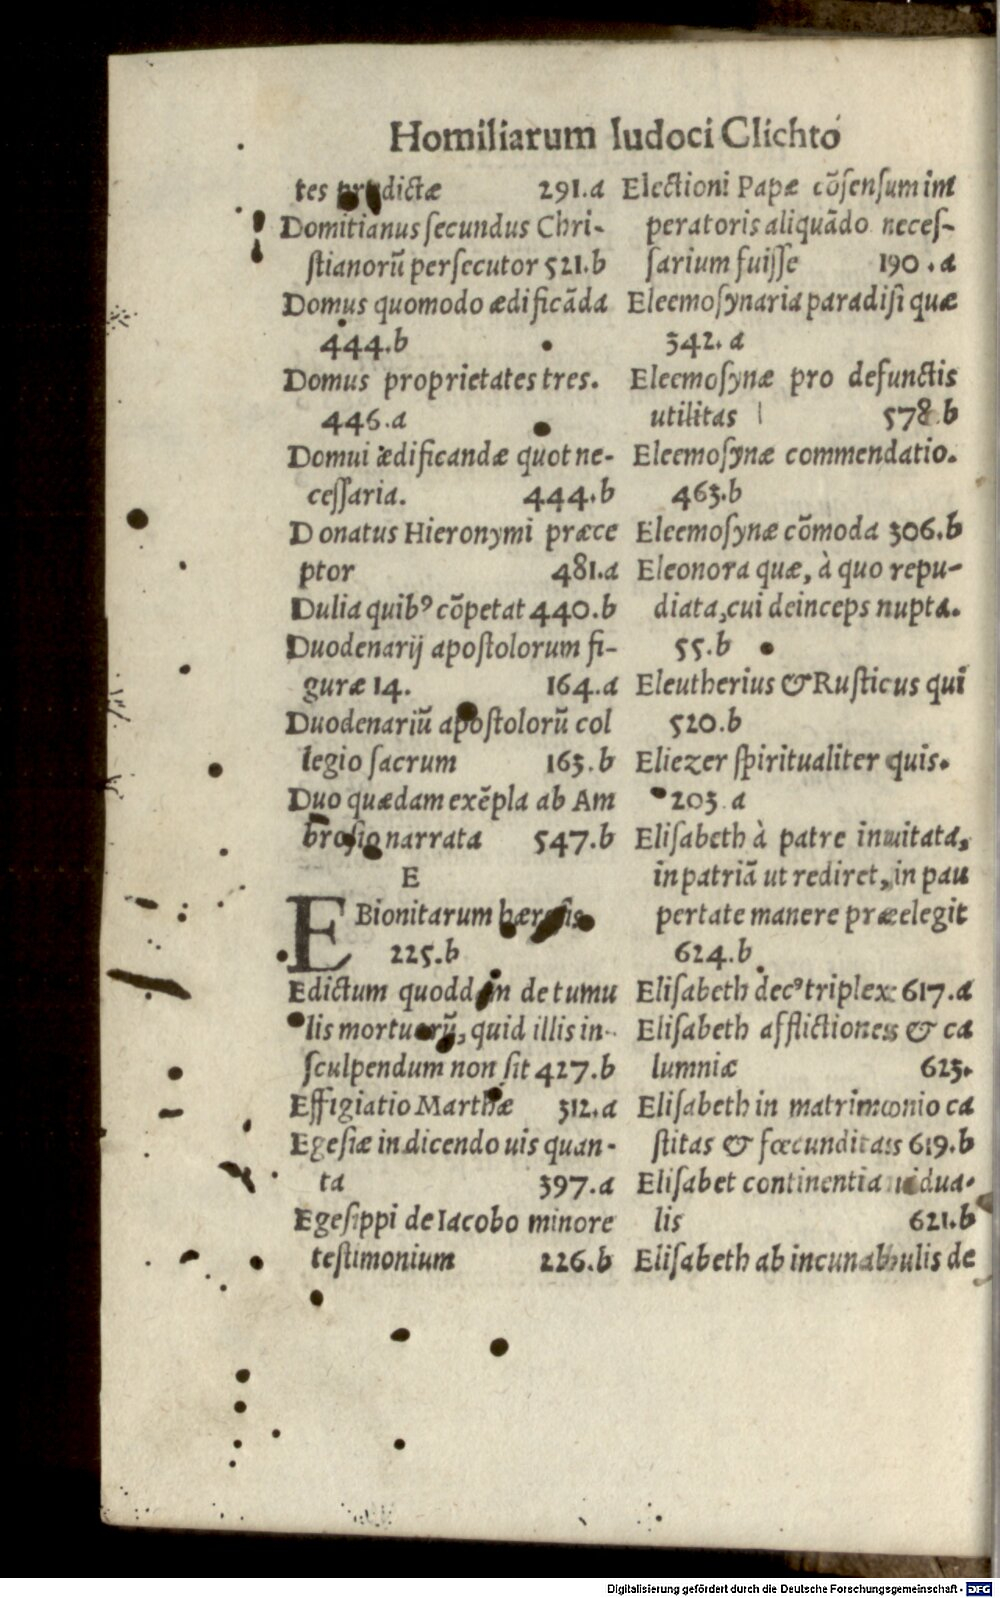 Homiliarum Iudoci Clichto
tes prædictæ 291.a
Domitianus secundus Chri-
stianorũ persecutor 521.b
Domus quomodo ædificãda
444.b
Domus proprietates tres.
446.a
Domui ædificandæ quot ne-
cessaria. 444.b
Donatus Hieronymi præce
ptor 481.a
Dulia quibꝰ cõpetat 440.b
Duodenarij apostolorum fi-
guræ 14. 164.a
Duodenariũ apostolorũ col
legio sacrum 163.b
Duo quædam exẽpla ab Am
brosio narrata 547.b
E
EBionitarum hæresis
225.b
Edictum quoddam de tumu
lis mortuorũ, quid illis in-
sculpendum non sit 427.b
Effigiatio Marthæ 312.a
Egesiæ in dicendo uis quan-
ta 397.a
Egesippi de Iacobo minore
testimonium 226.b
Electioni Papæ cõsensum im
peratoris aliquãdo neces-
sarium fuisse 190.a
Eleemosynaria paradisi quæ
342.a
Eleemosynæ pro defunctis
utilitas 578.b
Eleemosynæ commendatio.
463.b
Eleemosynæ cõmoda 306.b
Eleonora quæ, à quo repu-
diata, cui deinceps nupta.
55.b
Eleutherius & Rusticus qui
520.b
Eliezer spiritualiter quis.
203.a
Elisabeth à patre inuitata,
in patriã ut rediret, in pau
pertate manere præelegit
624.b
Elisabeth decꝰ triplex 617.a
Elisabeth afflictiones & ca
lumniæ 623.
Elisabeth in matrimonio ca
stitas & fœcunditas 619.b
Elisabet continentia uidua-
lis 621.b
Elisabeth ab incunabulis de
Digitalisierung gefördert durch die Deutsche Forschungsgemeinschaft - DFG